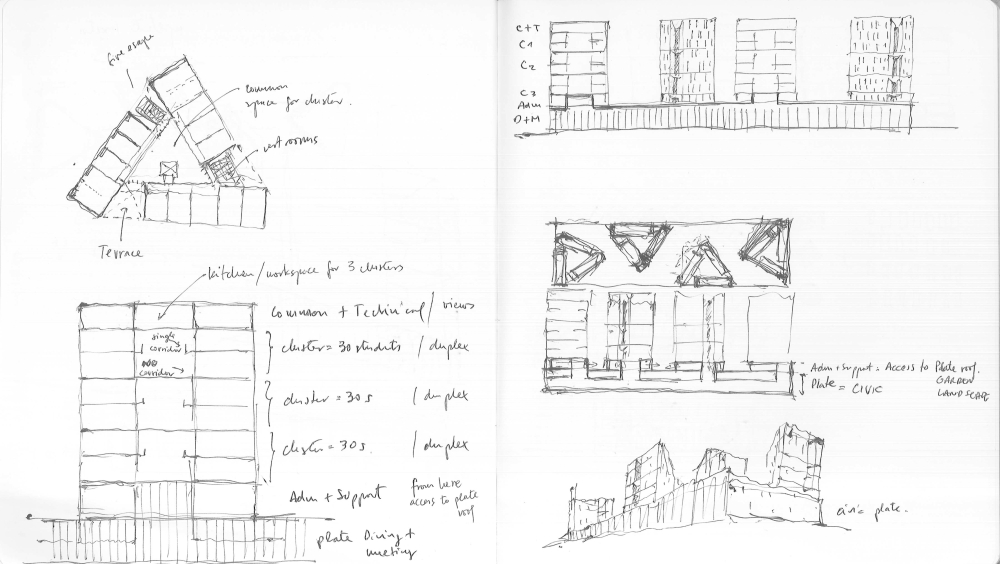 fire escape
common
space for cluster.
wet rooms
Terrace
kitchen/workspace for 3 clusters
Common + Technical / views
single
corridor
cluster = 30 students / duplex
NO
corridor
cluster = 30 s / duplex
cluster = 30 s. / duplex
Adm + Support
from here
access to plate
roof
plate Dining +
meeting
C+T
C1
C2
C3
Adm
D+M
Adm + Support = Access to Plate roof.
GARDEN
LANDSCAPE
Plate = CIVIC
civic plate.